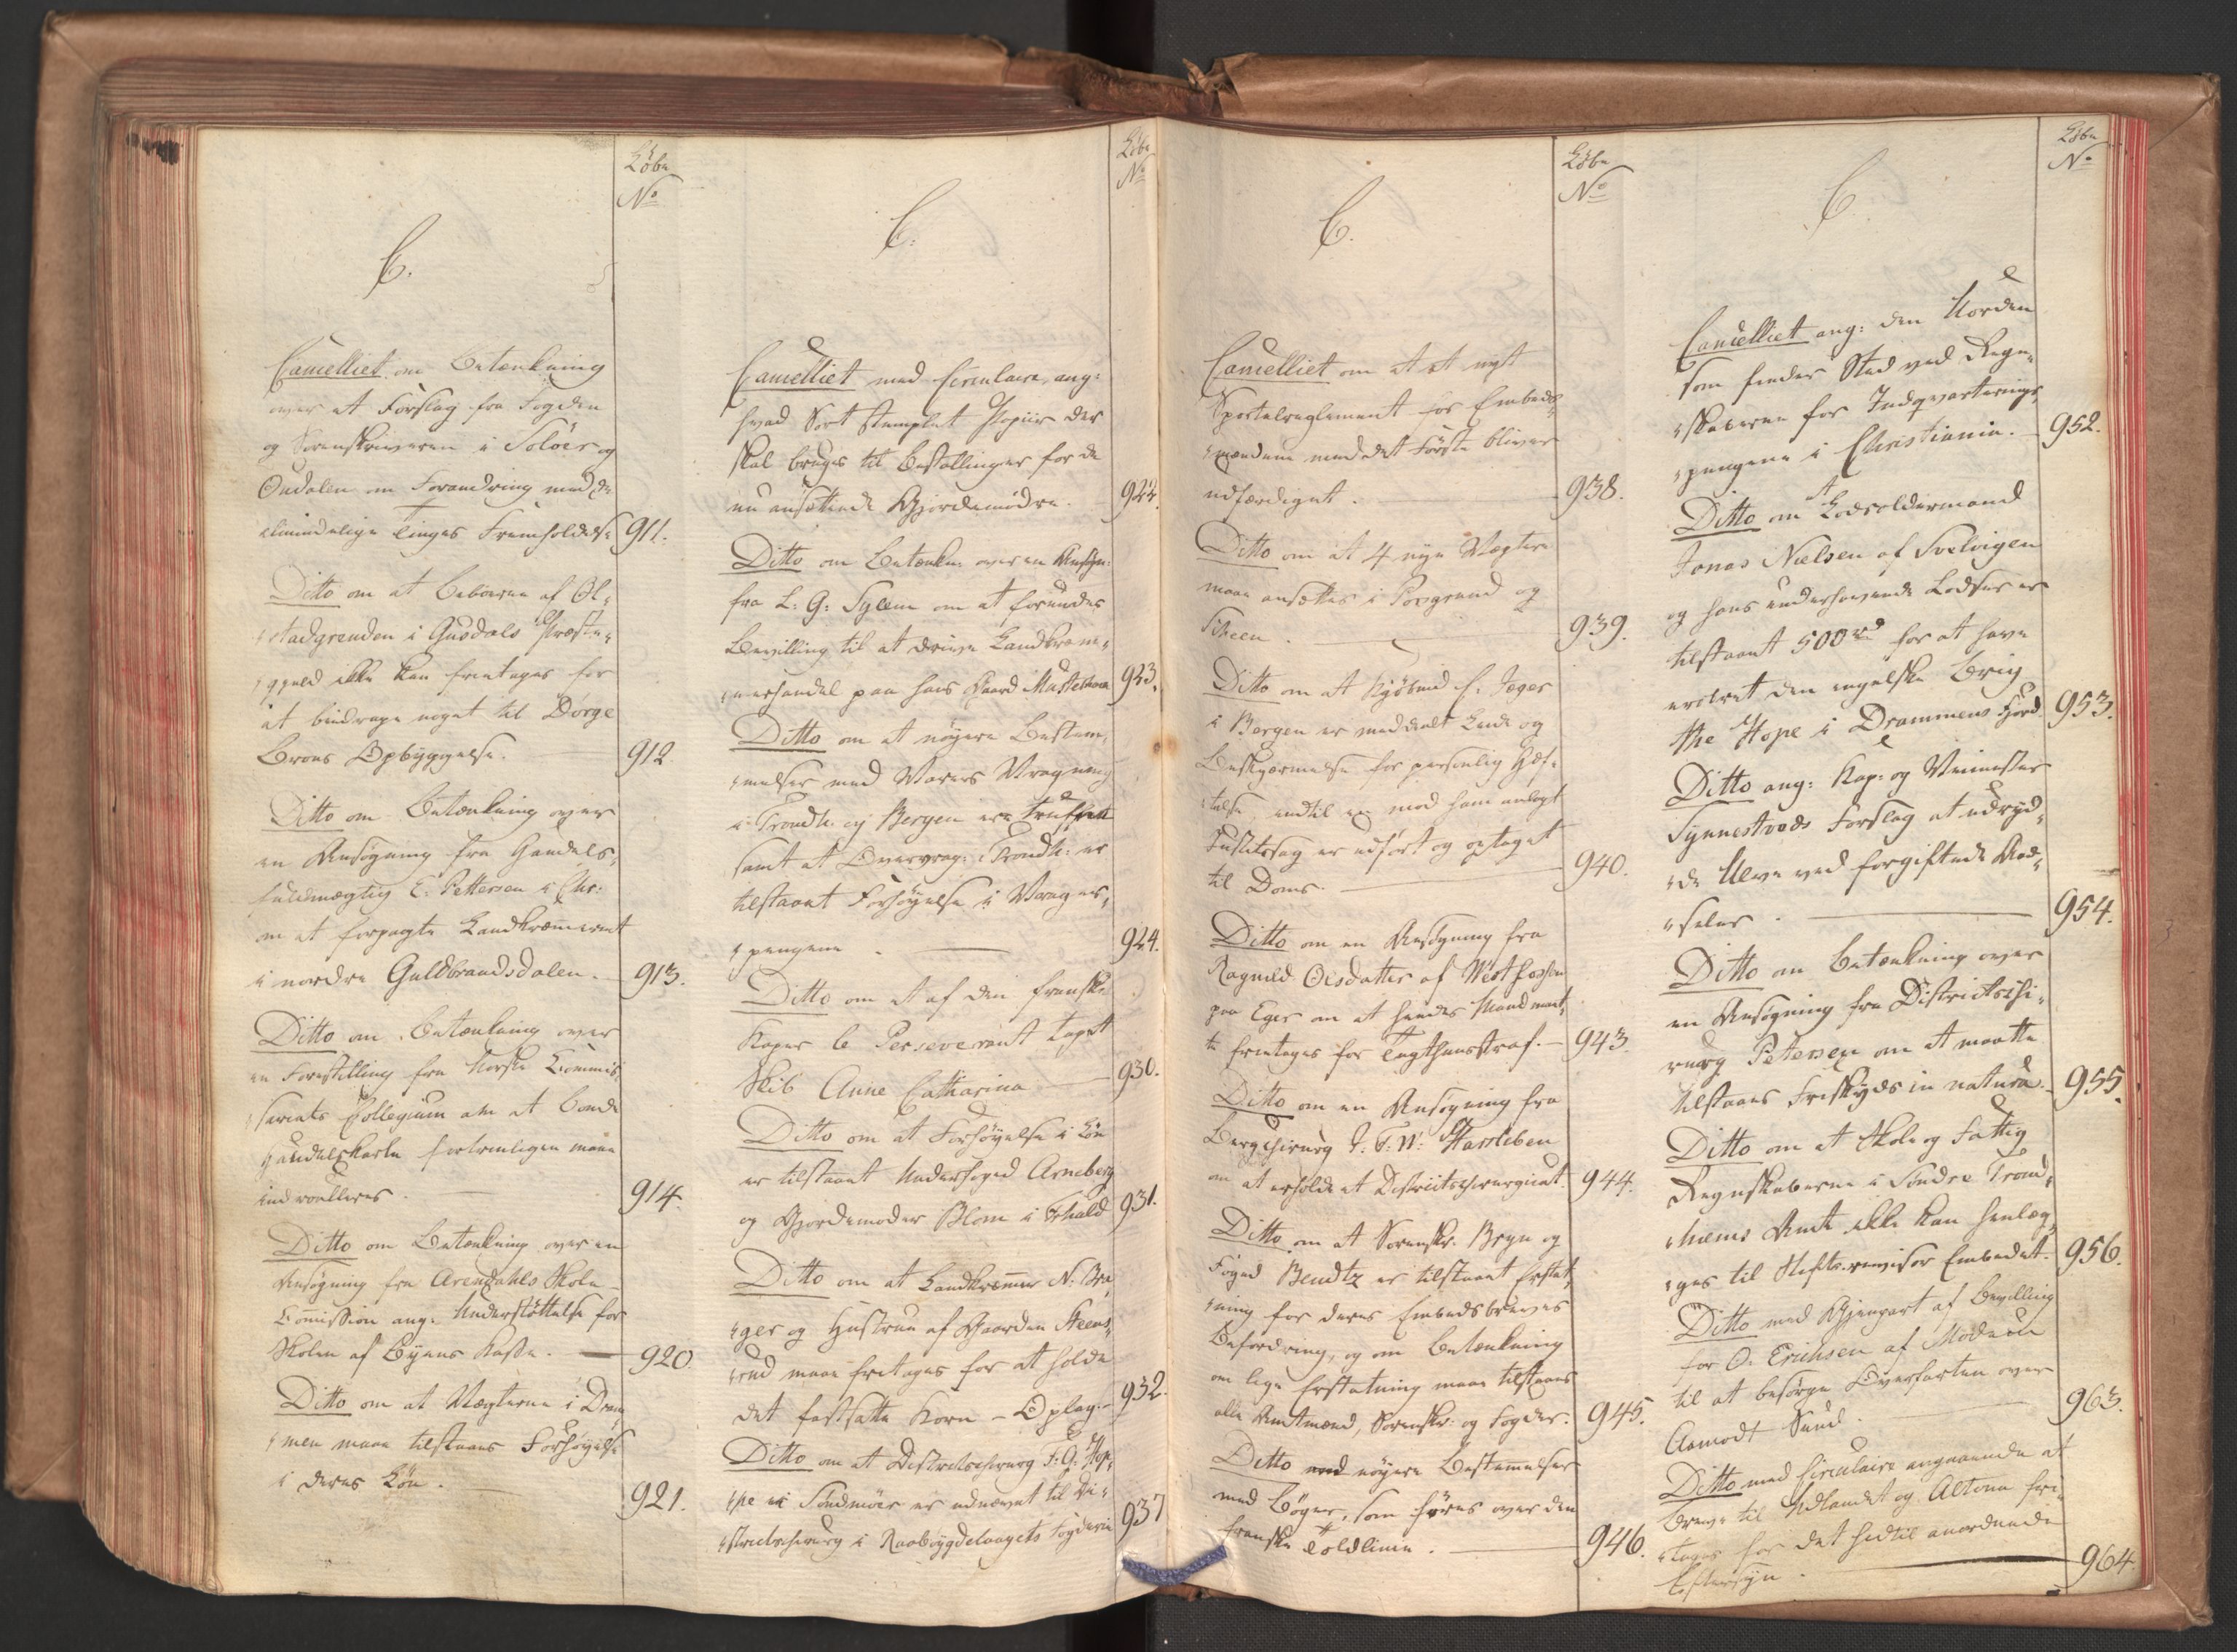 Løbe
No
C.
Cancelliet om Betænkning
over et Forslag fra Fogden
og Sorenskriveren i Soløer og
Oudalen om Forandring med de
almindelige Tinges Fremholdelse 911.
Ditto om at Beboerne af Ol-
stadgrenden i Gusdals Præste-
gjeld ikke kan fritages for
at bindrage noget til Dørge
Broes Opbyggelse. 912.
Ditto om Betænkning over
en Ansøgning fra Handels-
fuldmægtig E. Pettersen i Chr:
om at forpagte Landkræmmeriet
i nordre Guldbrandsdalen. 913.
Ditto om Betænkning over
en Forestilling fra Norske Commis-
sariats Collegium om at Bonde
Handelskarle fortrinligen maae
indroulleres. 914.
Ditto om Betænkning over en
Ansøgning fra Arendahls Skole
Commission ang: Understøttelse for
Skolen af Byens Kasse. 920.
Ditto om at Vægterne i Dram
men maae tilstaaes Forhøyelse
i deres Løn. 921.
Løbe
No
C.
Cancelliet med Circulaire, ang:
hvad Sort stemplet Papiir der
skal bruges til Bestallinger for de
nu ansættende Gjordemødre. 922.
Ditto om Betænkn: over en Ansøgn:
fra L: G: Sylem om at forundes
Bevilling til at drive Landkram-
merhandel paa hans Gaard 923.
Ditto om at nøyere Bestem-
melser med Varers Vragning
i Trondh. og Bergen ere truffne
samt at Overvrag: i Trondh: er
tilstaaet Forhøyelse i Vrager-
pengene. 924.
Ditto om at af den franske
Kaper le Perseverant tapt
Skib Anne Catharina 930.
Ditto om at Forhøyelse i Løn
er tilstaaet Underfoged Arneberg
og Gjordemoder Blom i Frhald 931.
Ditto om at Landkræmmer N. Bra-
ger og Hustrue af Gaarden Steens-
rud maae fritages for at holde
det fastsatte Korn-Oplag. 932.
Ditto om at Districtschirurg F: G: Hop-
pe i Søndmøer er udnævnt til Di-
strictschirurg i Raabøygdelaugets Fogderie 937
Løbe
No
C.
Cancelliet om at et nyt
Sportelreglement for Embeds-
mændene med det første bliver
udfærdiget. 938.
Ditto om at 4 nye Vægtere
maae ansættes i Porsgrund og
Scheen. 939.
Ditto om at Kjøbmd C. Jeger
i Bergen er meddeelt Leide og
Beskjærmelse for personlig Hæf-
telse, indtil en mod ham anlagt
Justitssag er udført og optaget
til Doms. 940.
Ditto om en Ansøgning fra
Ragnild Olsdatter af Vestfossen
paa Eger om at hendes Mand maat-
te fritages for Tugthuusstraf. 943.
Ditto om en Ansøgning fra
Bergchirurg J. F. W. Hassleben
om at erholde et Districtschirurgicat. 944.
Ditto om at Sorenskr. Bryn og
Foged Bendtz er tilstaaet Erstat-
ning for deres Embedsbreves
Befordring, og om Betænkning
om lige Erstatning maae tilstaaes
alle Amtmænd, Sorenskr: og Fogder. 945.
Ditto med nøyere Bestemmelser
med Bøger, som føres over den
franske Toldlinie. 946.
Løbe
No
C
Cancelliet ang: den Uorden
som finder Sted ved Regn-
skaberne for Indqvarterings-
pengene i Christiania. 952.
Ditto om at Lodsoldermand
Jonas Nielsen af Svelvigen
og hans underhavende Lodser er
tilstaaet 500 rd for at have
erobret den engelske Brig
the Hope i Drammens Fjord. 953.
Ditto ang: Kap: og Veimester
Synnestvedts Forslag at udryd-
de Ulve ved forgiftede Aad-
seler. 954.
Ditto om Betænkning over
en Ansøgning fra Districtschi-
rurg Petersen om at maatte
tilstaaes Friskyds in natura. 955.
Ditto om at Skole og Fattig
Regnskaberne i Søndre Trond-
hiems Amt ikke kan henlæg-
ges til Stifts-revisor Embedet. 956.
Ditto med Gjenpart af Bevilling
for O. Erichsen af Modum
til at besørge Overfarten over
Aamodt Sund. 963.
Ditto med Circulaire angaaende at
Breve til Udlandet og Altona fri-
tages for det hidtil anordnede
Eftersyn. 964.